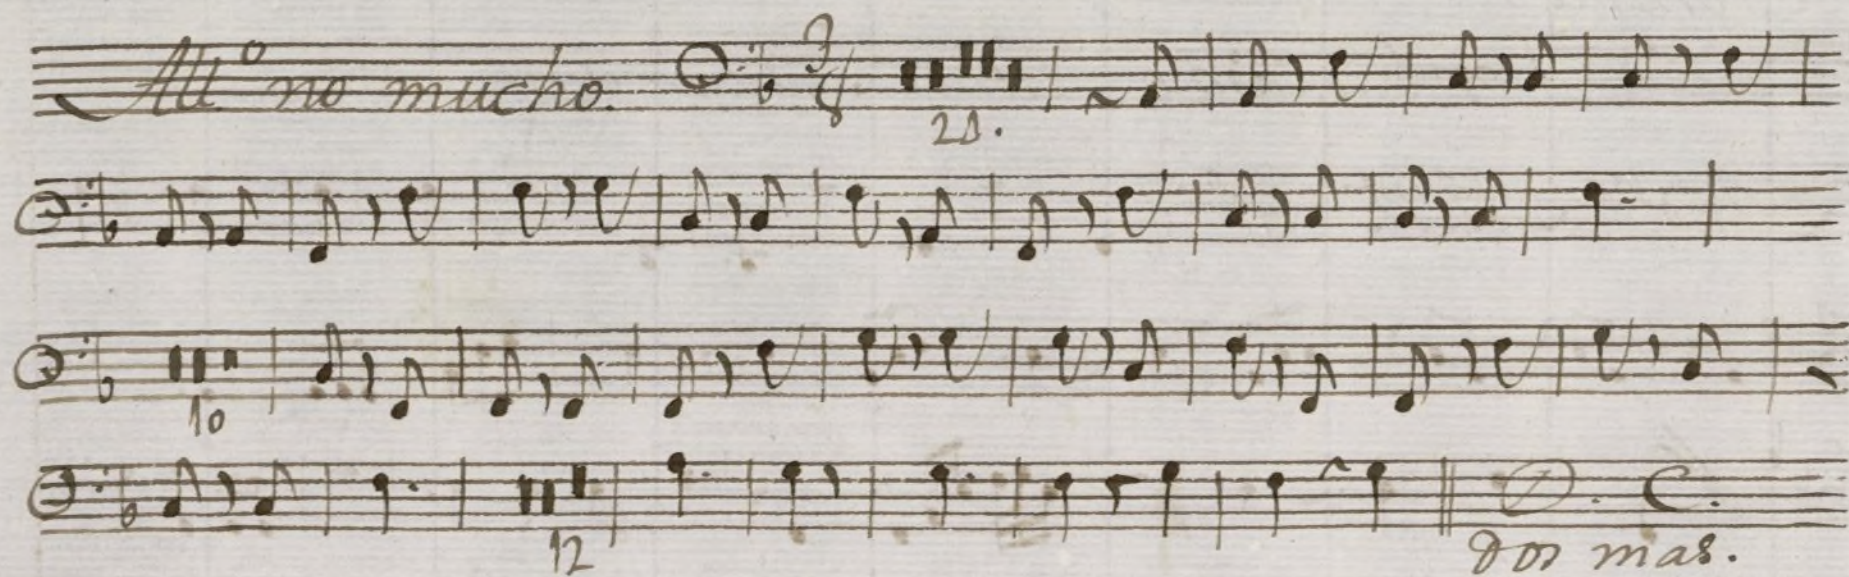 All.º no mucho. 3/8
10
12 D. C.
dos mas.